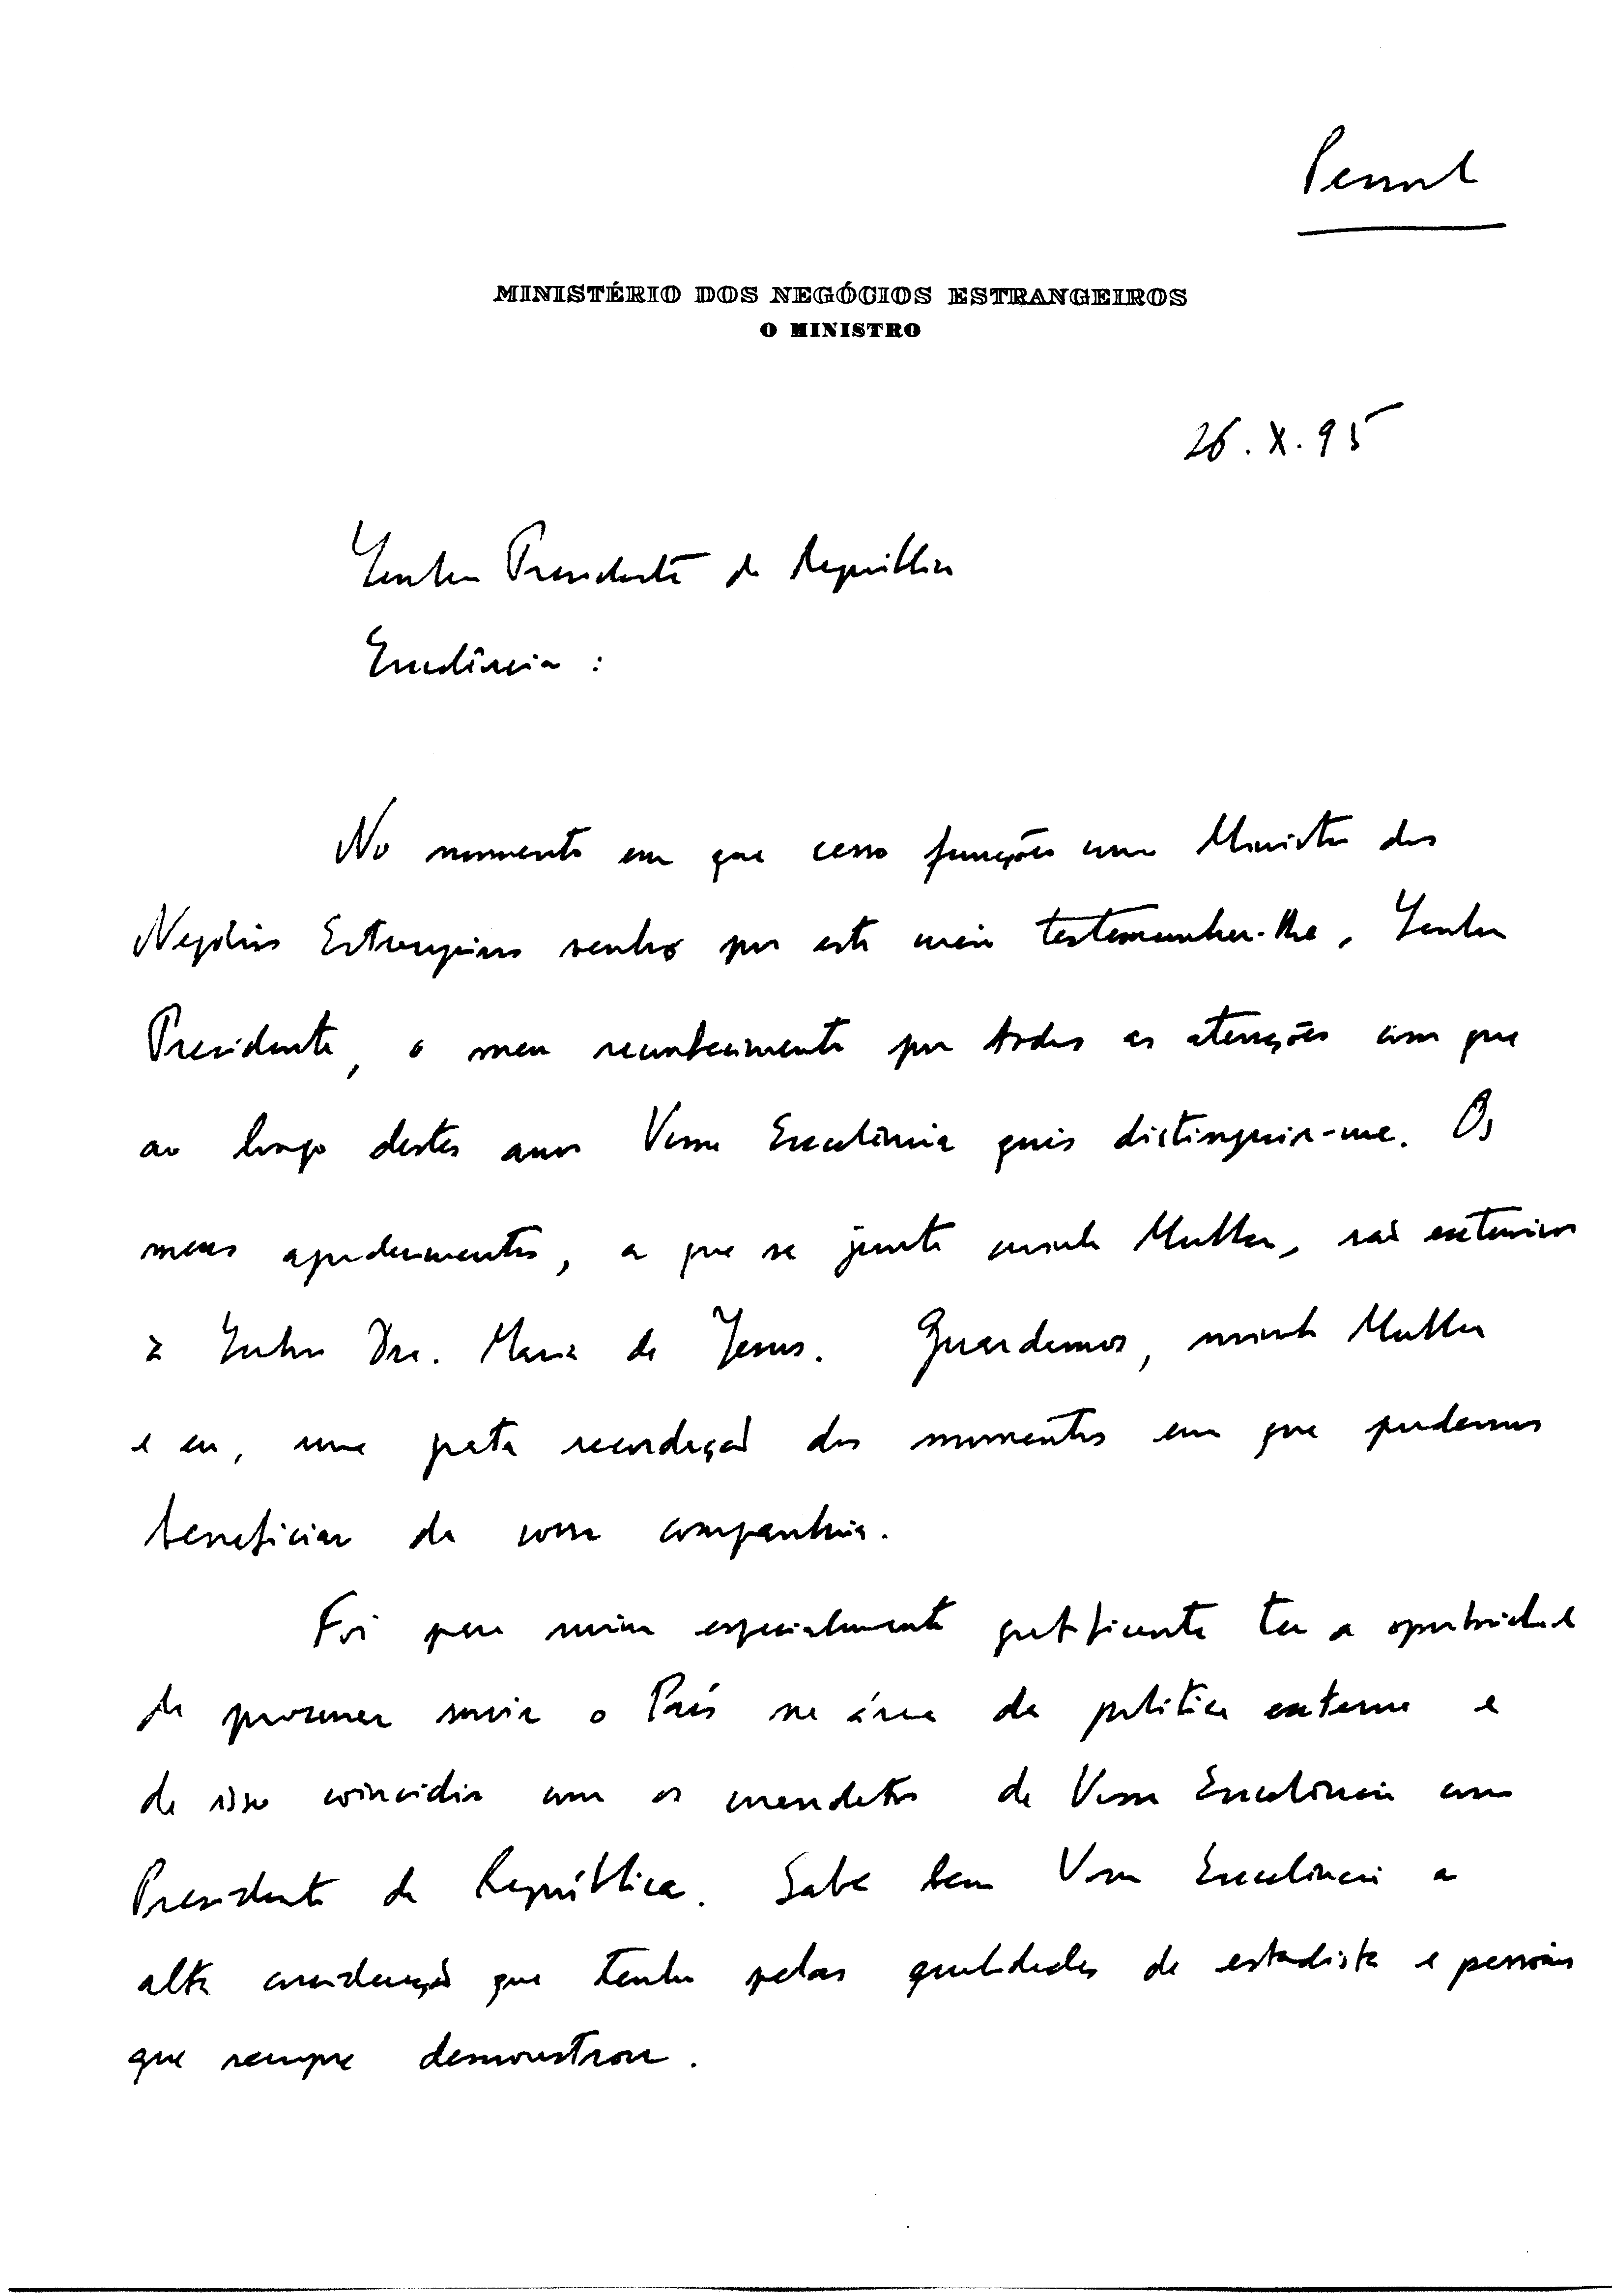 Pessoal
MINISTÉRIO DOS NEGÓCIOS ESTRANGEIROS
O MINISTRO
26.X.95
Senhor Presidente da República
Excelência :
No momento em que cesso funções como Ministro dos
Negócios Estrangeiros venho por este meio testemunhar-lhe, Senhor
Presidente, o meu reconhecimento por todas as atenções com que
ao longo destes anos Vossa Excelência quis distinguir-me. Os
meus agradecimentos, a que se junta minha Mulher, são extensivos
à Senhora Dra. Maria de Jesus. Guardamos, minha Mulher
e eu, uma grata recordação dos momentos em que pudemos
beneficiar da vossa companhia.
Foi para mim especialmente gratificante ter a oportunidade
de procurar servir o País na área da política externa e
de isso coincidir com os mandatos de Vossa Excelência como
Presidente da República. Sabe bem Vossa Excelência a
alta consideração que tenho pelas qualidades de estadista e pessoais
que sempre demonstrou.